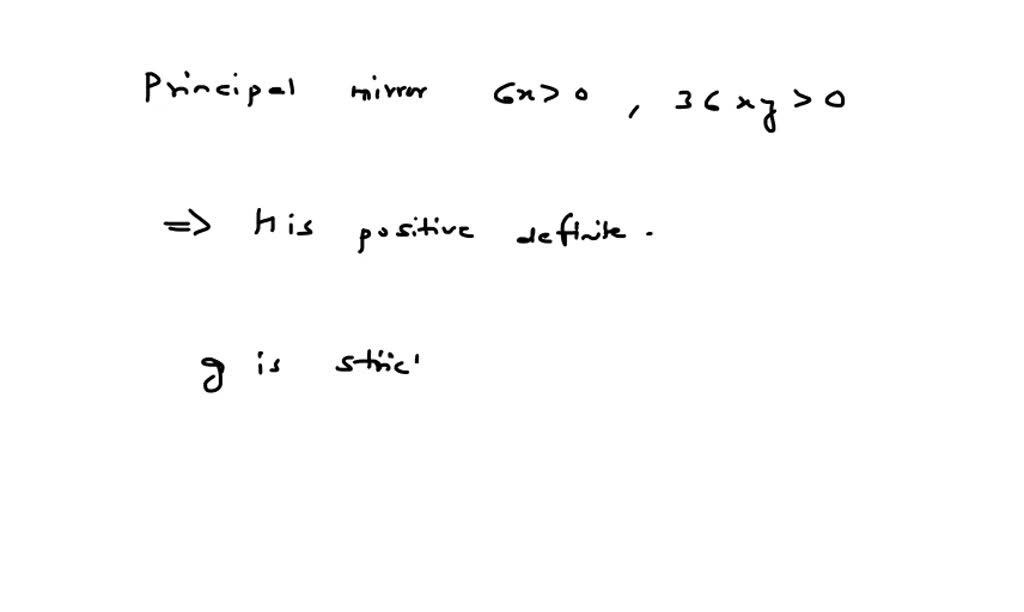 Principal mirror 6x > 0 , 36 xy > 0
=> H is positive definite .
g is strict